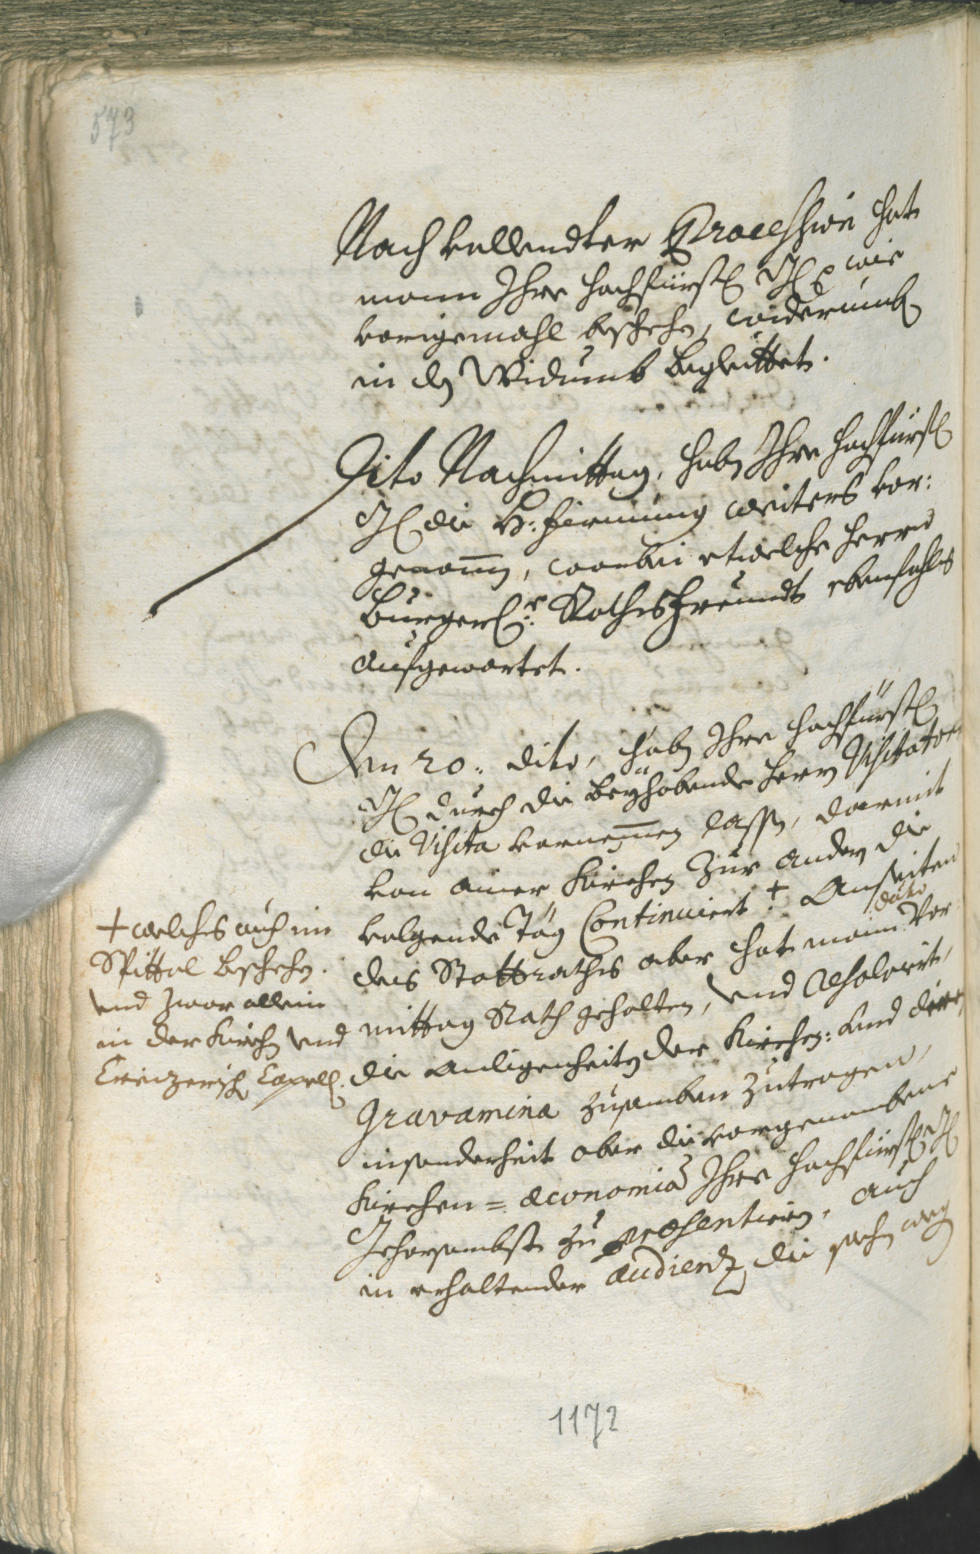 573
Nach vollendter Procession hat
mann Ihre hochfürstl: Gl: wie
vorigemahl beschehen, widerumb
in den Widumb begleittet.
Dito Nachmittag, haben Ihre hochfürstl:
Gl: die H: firmung weiters vor:
genomen, worbei etwelche herrn
Burgerl:r Rathsfreundt ebenfahls
aufgewartet.
Den 20: dito, haben Ihre hochfürstl:
Gl: durch die beyhabende herrn Visitatorn
die Visita vornemen lassen, darmit
von ainer Kirchen zur andern die
volgende Täg Continuiert † Anseiten
des Stattraths aber hat mann dito Vor
mittag Rath gehalten, und resolviert,
die anligenheiten der Kirchen: und
Gravamina zusamben zutragen,
insonderheit aber die vorgenombene
Kirchen=œconomia Ihre hochfürstl: Gl:
Gehorsambst zu præsentiern, auch
in erhaltender audienz die sachen
† welches auch im
Spittal beschehen.
und zwar allein
in der Kirchen und
Capell.
1172